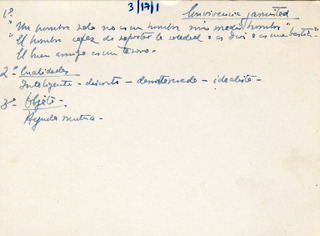 3/17/1
Convivencia y amistad
1º "Un hombre solo no es un hombre, sino medio hombre"
"El hombre capaz de soportar la soledad o es Dios o es una bestia"
El buen amigo es un tesoro.
2º Cualidades
Inteligente - discreto - desinteresado - idealista
3º Objeto -
Ayuda mutua -